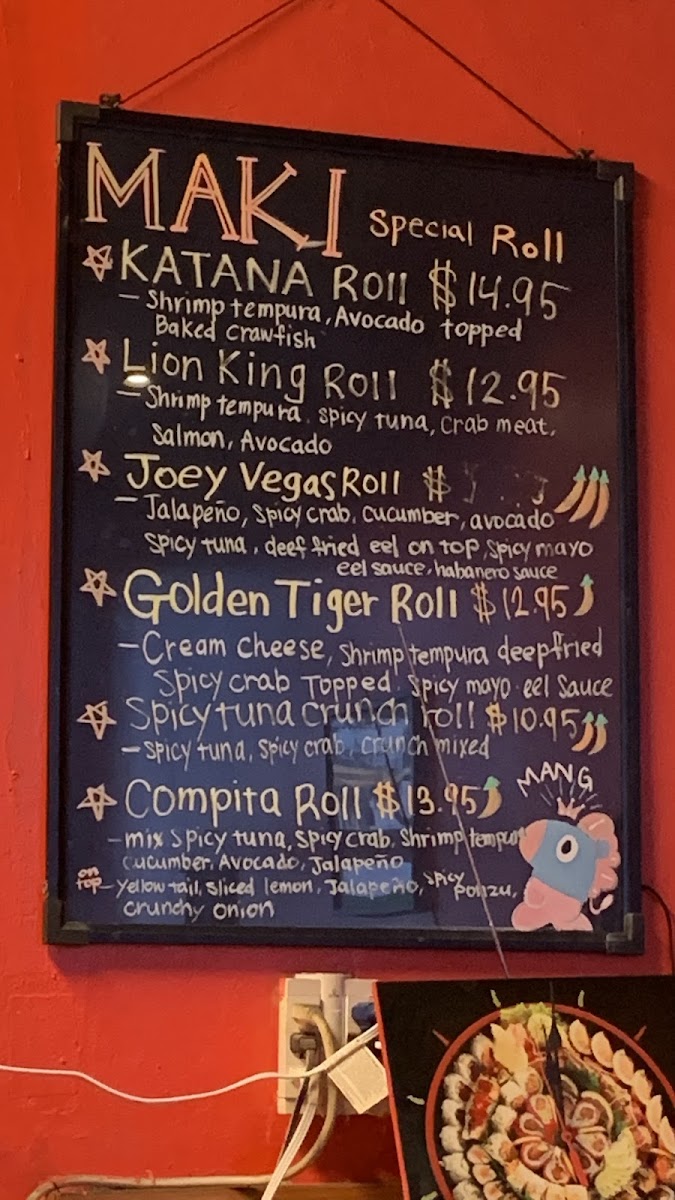 MAKI Special Roll
KATANA Roll $14.95
- Shrimp tempura, Avocado topped
Baked crawfish
Lion King Roll $12.95
- Shrimp tempura, spicy tuna, crab meat,
Salmon, Avocado
Joey Vegas Roll $
- Jalapeño, spicy crab, cucumber, avocado
spicy tuna, deef fried eel on top, spicy mayo
eel sauce, habanero sauce
Golden Tiger Roll $12.95
- Cream cheese, shrimp tempura deepfried
Spicy crab Topped, spicy mayo eel sauce
Spicy tuna crunch roll $10.95
- spicy tuna, spicy crab, crunch mixed
MANG
Compita Roll $13.95
- mix spicy tuna, spicy crab, shrimp tempura
cucumber, Avocado, Jalapeño
on top - Yellow tail, sliced lemon, Jalapeño, spicy ponzu,
crunchy onion